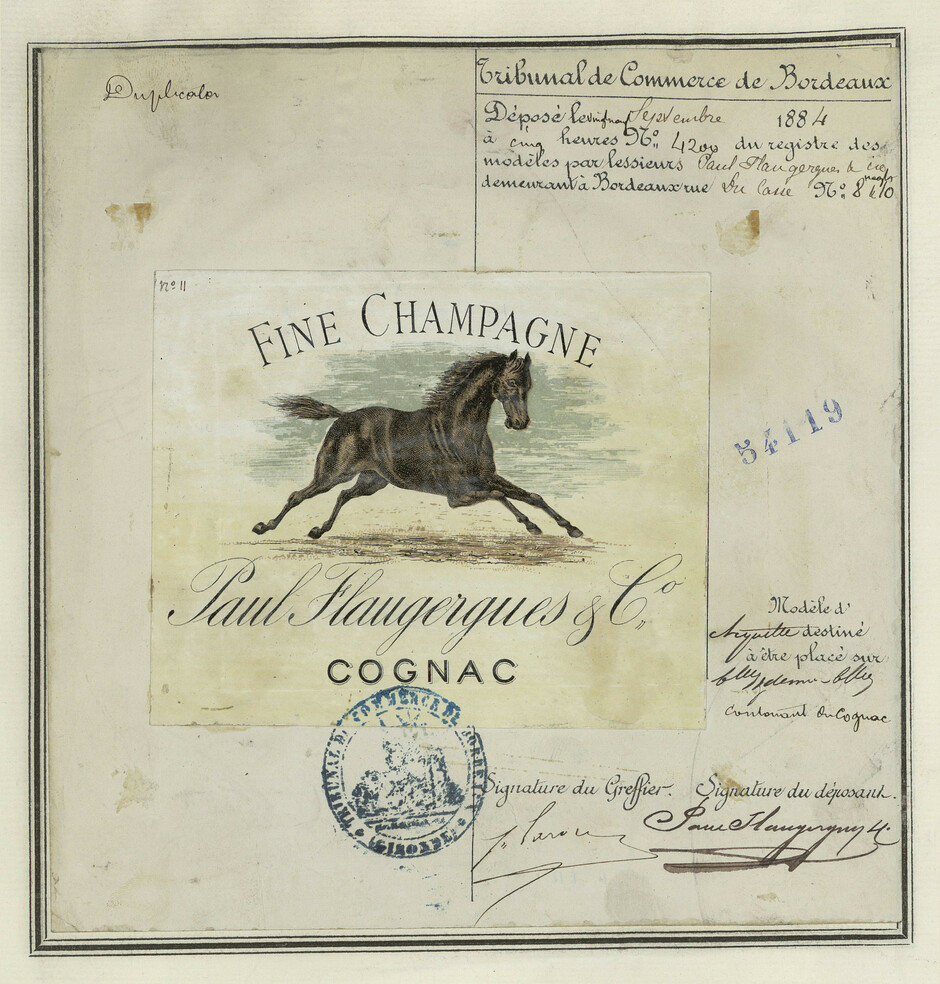 Duplicata
Tribunal de Commerce de Bordeaux
Déposé le Septembre 1884
à cinq heures No. 4200 du registre des
modèles par lessieurs Paul Flaugergues & Cie
demeurant à Bordeaux rue No. 8 & 10
no 11
FINE CHAMPAGNE
54119
Paul Flaugergues & Co.
COGNAC
Modèle d'
destiné
à être placé sur
contenant du Cognac
TRIBUNAL DE COMMERCE DE BORDEAUX
(GIRONDE)
Signature du Greffier. Signature du déposant.
Paul Flaugergues